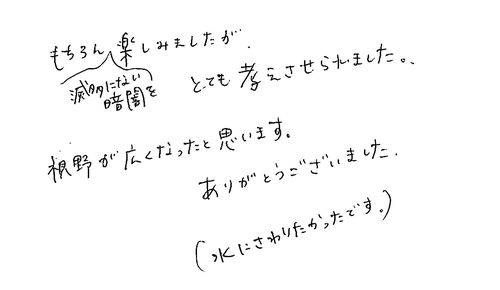 もちろん楽しみましたが、
滅多にない
暗闇を
とても考えさせられました。
視野が広くなったと思います。
ありがとうございました。
(水にさわりたかったです。)